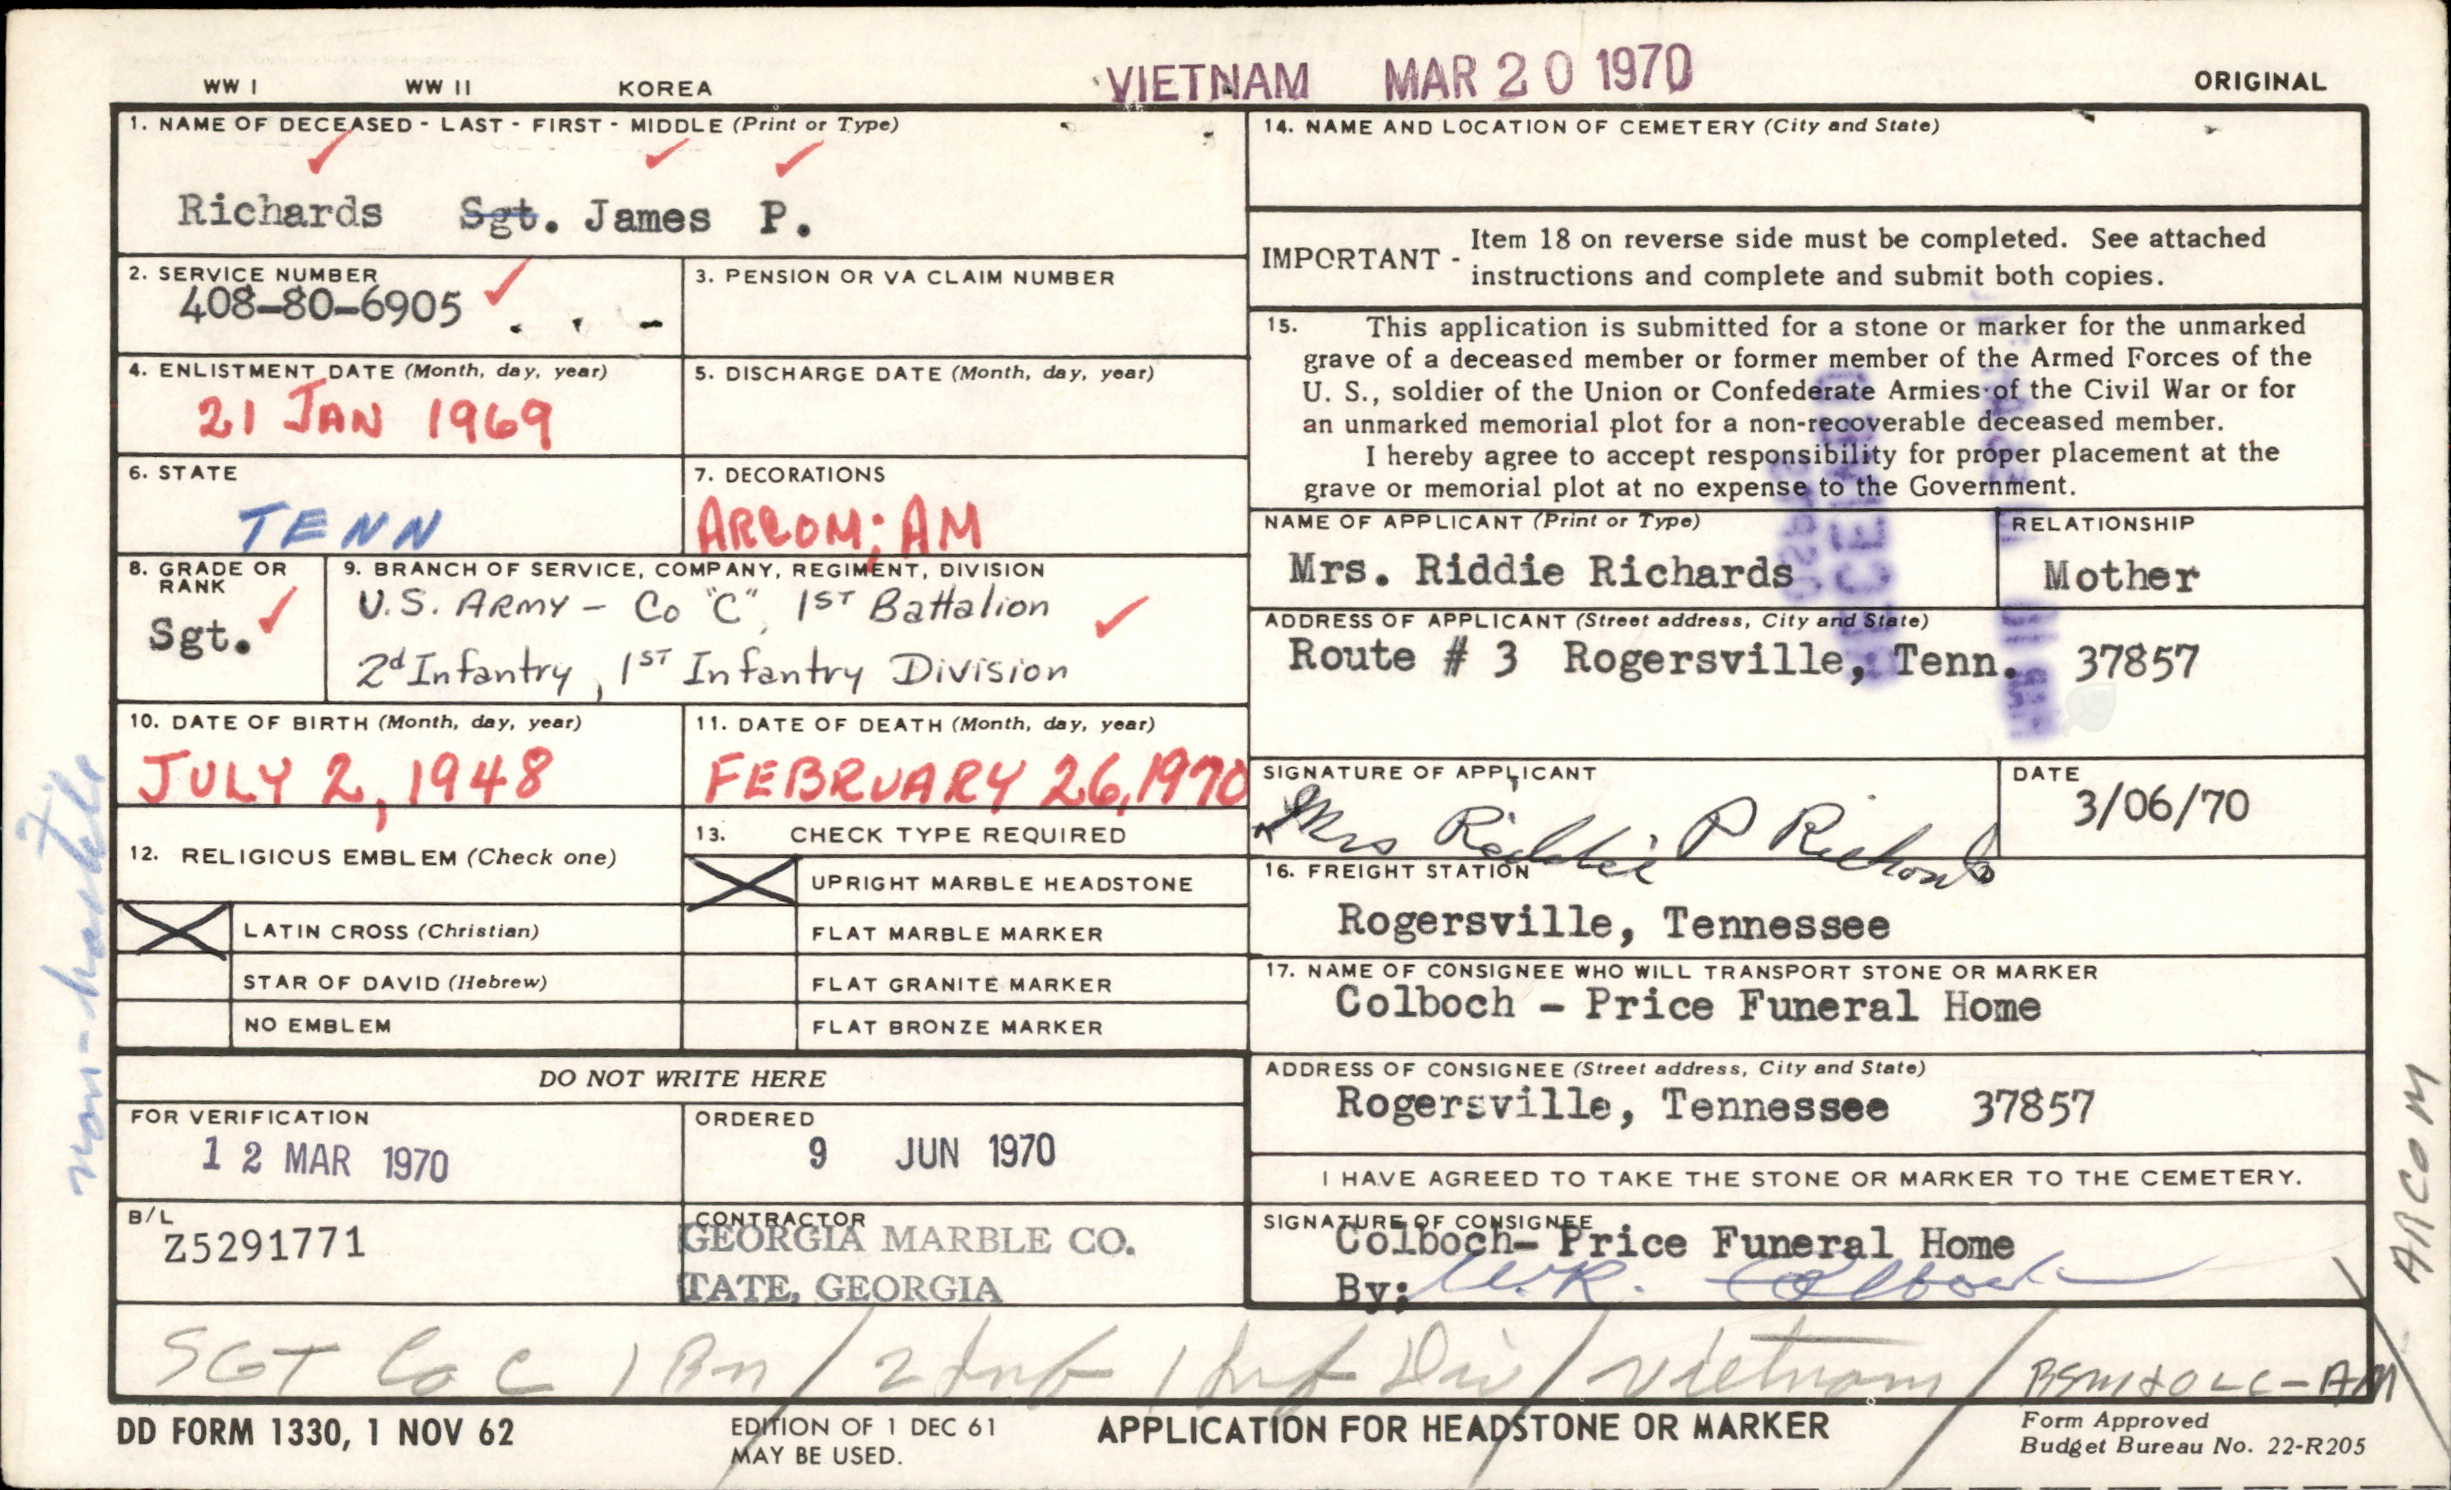 WW I WW II KOREA VIETNAM MAR 20 1970 ORIGINAL
1. NAME OF DECEASED - LAST - FIRST - MIDDLE (Print or Type)
Richards Sgt. James P.
2. SERVICE NUMBER
408-80-6905
3. PENSION OR VA CLAIM NUMBER
4. ENLISTMENT DATE (Month, day, year)
21 JAN 1969
5. DISCHARGE DATE (Month, day, year)
6. STATE
TENN
7. DECORATIONS
ARCOM; AM
8. GRADE OR
RANK
Sgt.
9. BRANCH OF SERVICE, COMPANY, REGIMENT, DIVISION
U.S. ARMY - Co "C", 1ST Battalion
2d Infantry, 1ST Infantry Division
10. DATE OF BIRTH (Month, day, year)
JULY 2, 1948
11. DATE OF DEATH (Month, day, year)
FEBRUARY 26, 1970
12. RELIGIOUS EMBLEM (Check one)
LATIN CROSS (Christian)
STAR OF DAVID (Hebrew)
NO EMBLEM
13. CHECK TYPE REQUIRED
UPRIGHT MARBLE HEADSTONE
FLAT MARBLE MARKER
FLAT GRANITE MARKER
FLAT BRONZE MARKER
DO NOT WRITE HERE
FOR VERIFICATION
12 MAR 1970
ORDERED
9 JUN 1970
B/L
Z5291771
CONTRACTOR
GEORGIA MARBLE CO.
TATE, GEORGIA
14. NAME AND LOCATION OF CEMETERY (City and State)
IMPORTANT - Item 18 on reverse side must be completed. See attached
instructions and complete and submit both copies.
15. This application is submitted for a stone or marker for the unmarked
grave of a deceased member or former member of the Armed Forces of the
U. S., soldier of the Union or Confederate Armies of the Civil War or for
an unmarked memorial plot for a non-recoverable deceased member.
I hereby agree to accept responsibility for proper placement at the
grave or memorial plot at no expense to the Government.
RECEIVED
NAME OF APPLICANT (Print or Type)
Mrs. Riddie Richards
RELATIONSHIP
Mother
ADDRESS OF APPLICANT (Street address, City and State)
Route # 3 Rogersville, Tenn. 37857
SIGNATURE OF APPLICANT
Mrs Riddie P Richards
DATE
3/06/70
16. FREIGHT STATION
Rogersville, Tennessee
17. NAME OF CONSIGNEE WHO WILL TRANSPORT STONE OR MARKER
Colboch - Price Funeral Home
ADDRESS OF CONSIGNEE (Street address, City and State)
Rogersville, Tennessee 37857
I HAVE AGREED TO TAKE THE STONE OR MARKER TO THE CEMETERY.
SIGNATURE OF CONSIGNEE
Colboch- Price Funeral Home
By; W.R. Colboch
SGT Co C 1 Bn / 2 Inf 1 Inf Div / Vietnam / BSM & OLC - AM
ARCOM
non-hostile
DD FORM 1330, 1 NOV 62
EDITION OF 1 DEC 61
MAY BE USED.
APPLICATION FOR HEADSTONE OR MARKER
Form Approved
Budget Bureau No. 22-R205